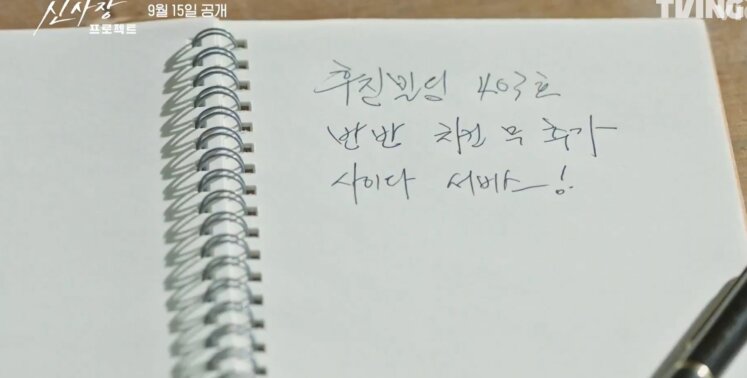 신사장
프로젝트
9월 15일 공개
TVING
후진빌딩 403호
반반 치킨 무 추가
사이다 서비스!